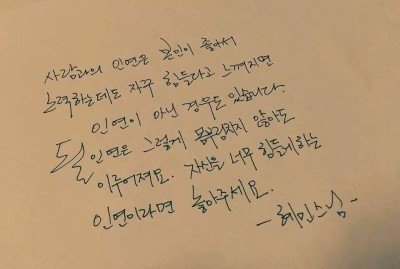 사람과의 인연은 본인이 좋아서
노력하는데도 자꾸 힘들다고 느껴지면
인연이 아닌 경우도 있습니다.
될 인연은 그렇게 몸부림치지 않아도
이루어져요. 자신을 너무 힘들게 하는
인연이라면 놓아주세요.
- 혜민스님 -